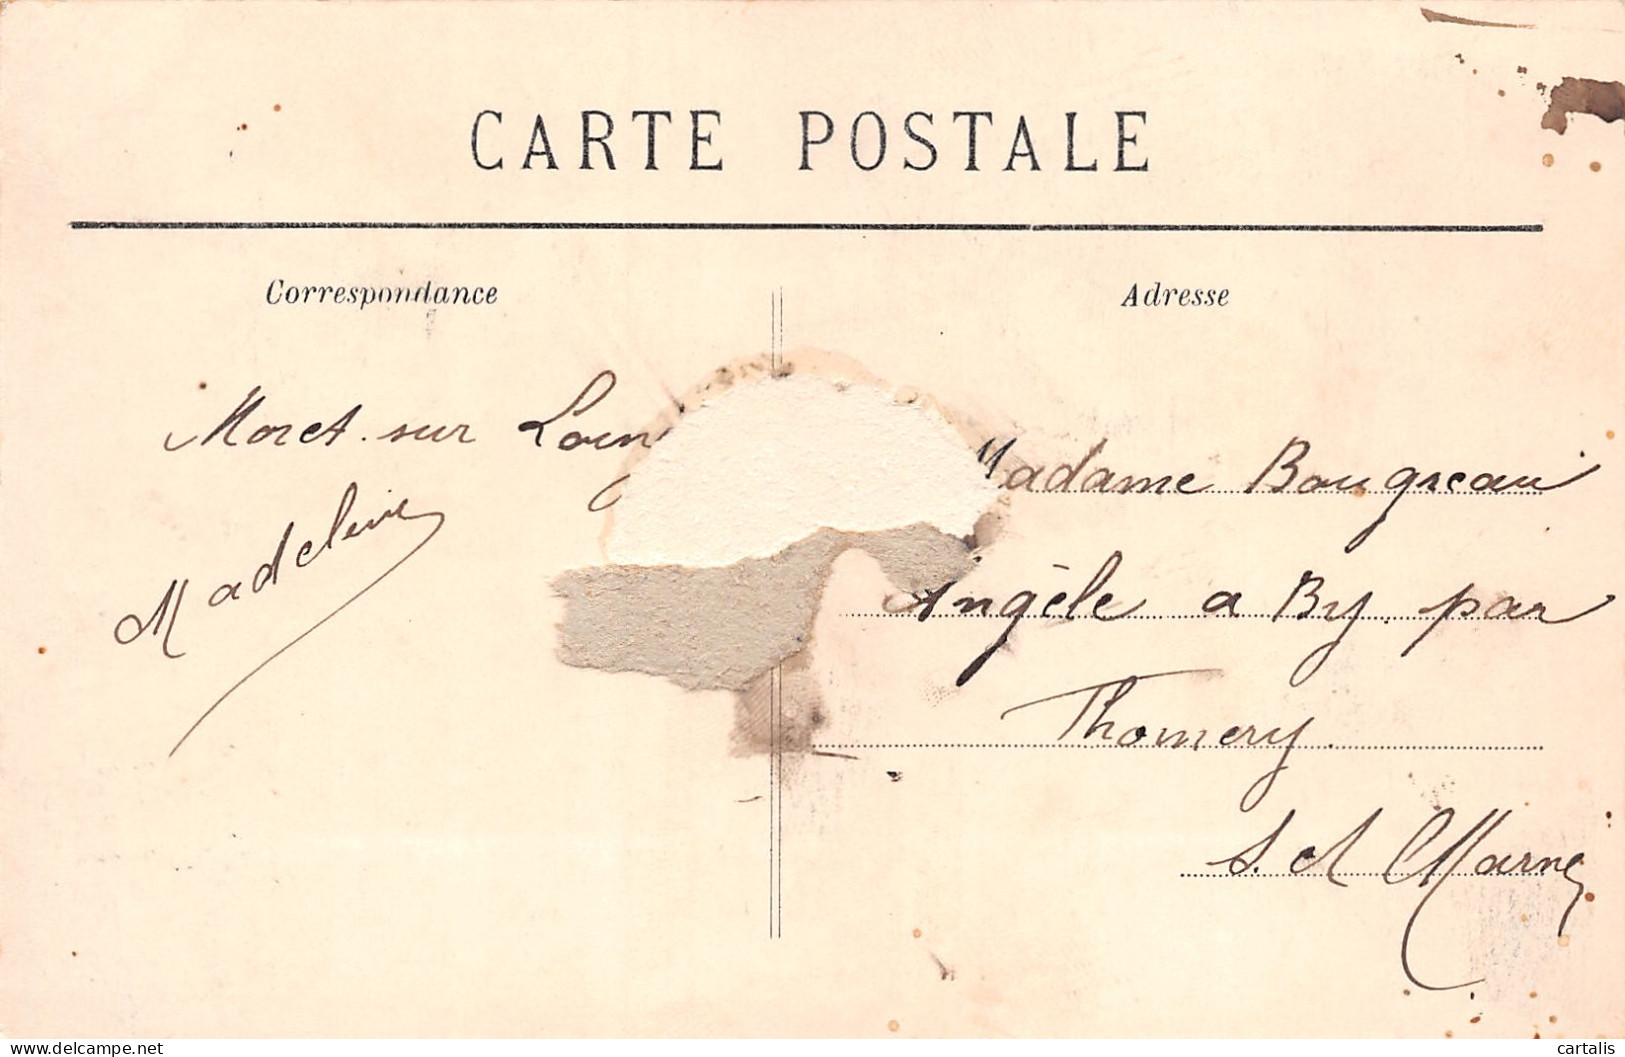 CARTE POSTALE
Correspondance
Moret. sur Loin
Madeleine
Adresse
Madame Bougreau
Angèle a By par
Thomery.
S. et Marne
www.delcampe.net
cartalis